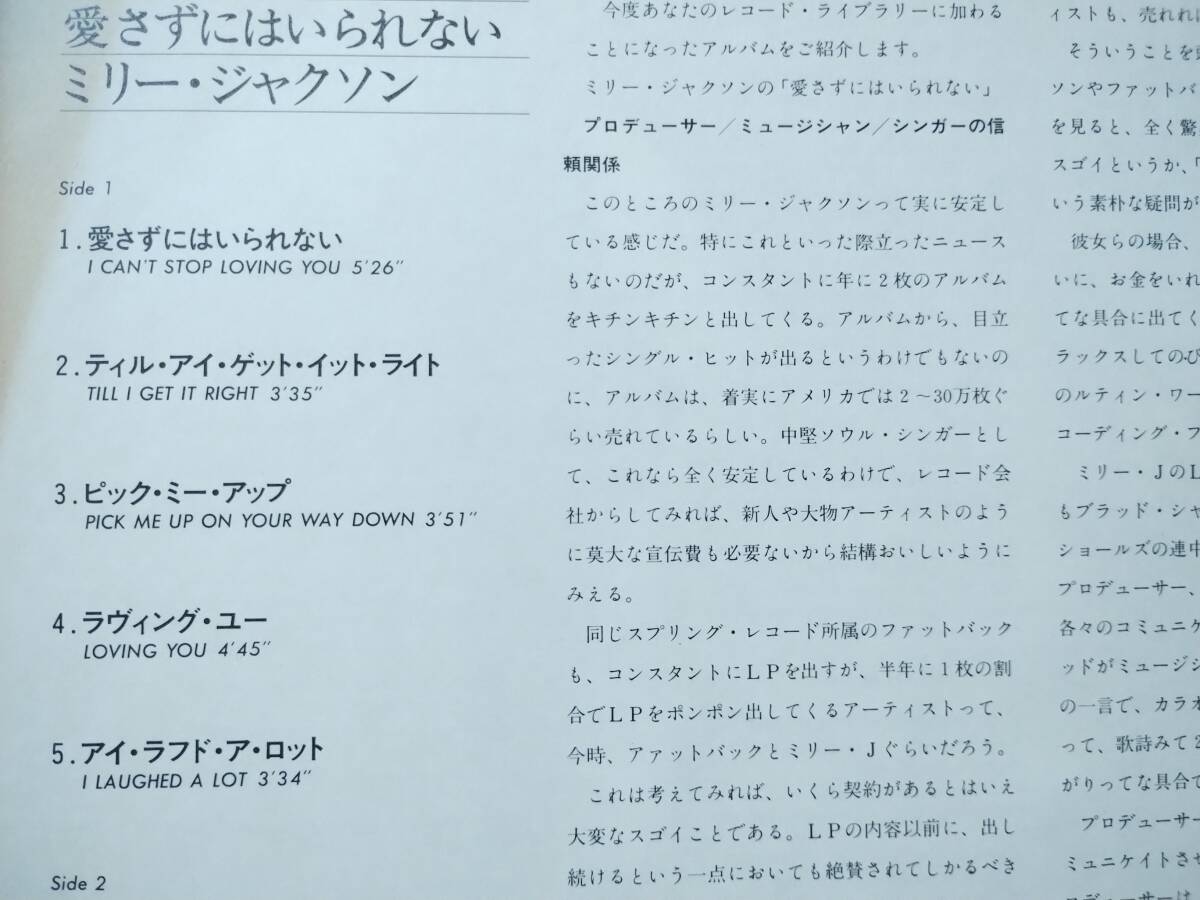 愛さずにはいられない
ミリー・ジャクソン
Side 1
1. 愛さずにはいられない
I CAN'T STOP LOVING YOU 5'26"
2. ティル・アイ・ゲット・イット・ライト
TILL I GET IT RIGHT 3'35"
3. ピック・ミー・アップ
PICK ME UP ON YOUR WAY DOWN 3'51"
4. ラヴィング・ユー
LOVING YOU 4'45"
5. アイ・ラフド・ア・ロット
I LAUGHED A LOT 3'34"
Side 2
今度あなたのレコード・ライブラリーに加わる
ことになったアルバムをご紹介します。
ミリー・ジャクソンの「愛さずにはいられない」
プロデューサー／ミュージシャン／シンガーの信
頼関係
このところのミリー・ジャクソンって実に安定し
ている感じだ。特にこれといった際立ったニュース
もないのだが、コンスタントに年に2枚のアルバム
をキチンキチンと出してくる。アルバムから、目立
ったシングル・ヒットが出るというわけでもないの
に、アルバムは、着実にアメリカでは2〜30万枚ぐ
らい売れているらしい。中堅ソウル・シンガーとし
て、これなら全く安定しているわけで、レコード会
社からしてみれば、新人や大物アーティストのよう
に莫大な宣伝費も必要ないから結構おいしいように
みえる。
同じスプリング・レコード所属のファットバック
も、コンスタントにＬＰを出すが、半年に1枚の割
合でＬＰをポンポン出してくるアーティストって、
今時、アァットバックとミリー・Ｊぐらいだろう。
これは考えてみれば、いくら契約があるとはいえ
大変なスゴイことである。ＬＰの内容以前に、出し
続けるという一点においても絶賛されてしかるべき
ィストも、売れれ
そういうことを
ソンやファットバ
を見ると、全く驚
スゴイというか、「
いう素朴な疑問が
彼女らの場合、
いに、お金をいれ
てな具合に出てく
ラックスしてのび
のルティン・ワー
コーディング・フ
ミリー・ＪのＬ
もブラッド・シャ
ショールズの連中
プロデューサー、
各々のコミュニケ
ッドがミュージシ
の一言で、カラオ
って、歌詩みて2
がりってな具合で
プロデューサー
ミュニケイトさせ
ロデューサーは